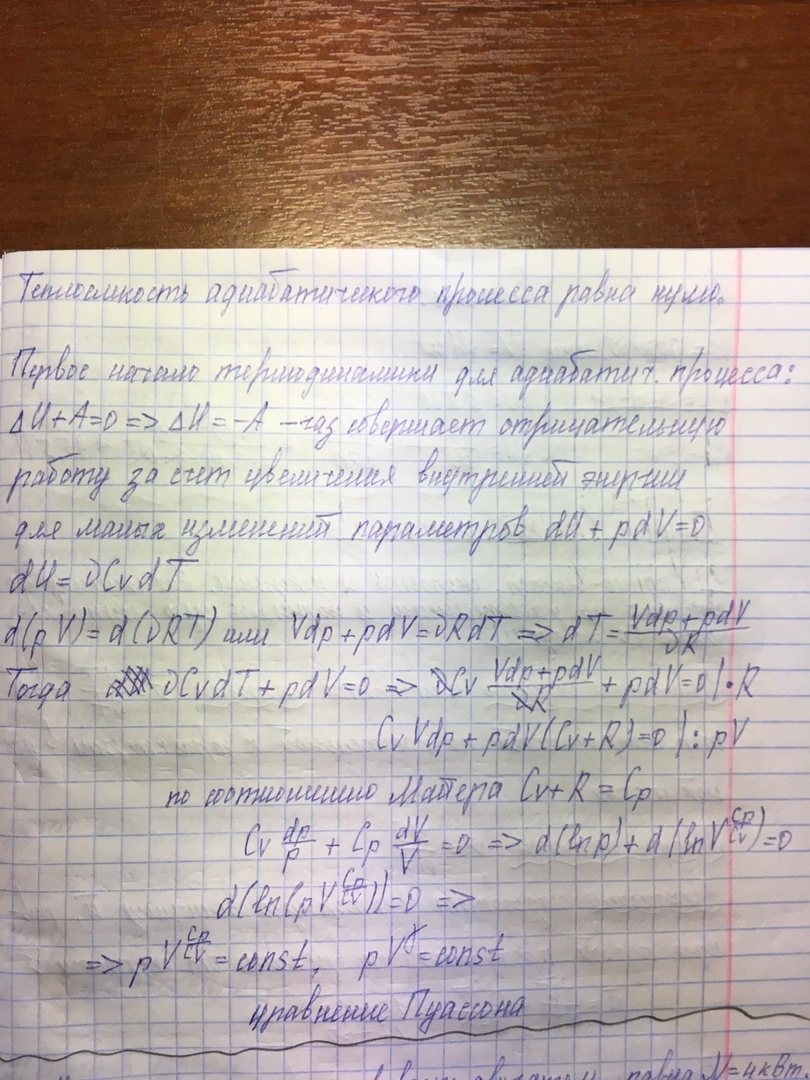 Теплоемкость адиабатического процесса равна нулю.
Первое начало термодинамики для адиабатич. процесса:
ΔU+A=0 => ΔU=-A – газ совершает отрицательную
работу за счет увеличения внутренней энергии
для малых изменений параметров dU + pdV=0
dU= νCvdT
d(pV)=d(νRT) или Vdp+pdV=νRdT => dT= (Vdp+pdV)/(νR)
Тогда νCvdT+pdV=0 => νCv (Vdp+pdV)/(νR) + pdV=0 | • R
CvVdp+pdV(Cv+R)=0 | : pV
по соотношению Майера Cv+R = Cp
Cv dp/p + Cp dV/V =0 => d(lnp)+d(lnV^(Cp/Cv))=0
d(ln(pV^(Cp/Cv)))=0 =>
=> pV^(Cp/Cv) = const, pV^γ=const
уравнение Пуассона
равна N=4кВт.